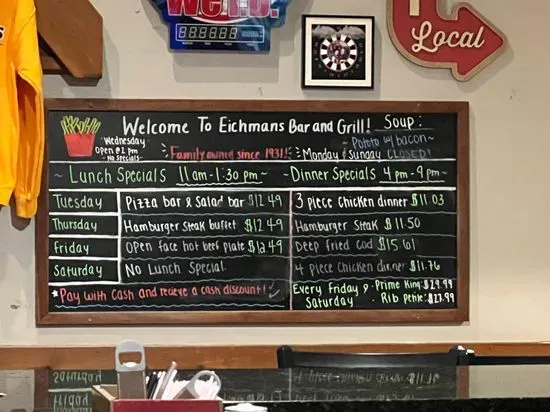 Local
Welcome To Eichmans Bar and Grill!
Soup:
Potato w/ bacon~
Wednesday
Open @ 2 pm
~ No Specials ~
Family owned since 1931!
Monday & Sunday CLOSED!
~ Lunch Specials 11am-1:30pm ~
~Dinner Specials 4pm-9pm~
Tuesday Pizza bar & Salad bar $12.49 3 piece Chicken dinner $11.03
Thursday Hamburger Steak buffet $12.49 Hamburger Steak $11.50
Friday Open face hot beef plate $12.49 Deep Fried Cod $15.61
Saturday No Lunch Special 4 piece Chicken dinner $11.76
*Pay with Cash and recieve a cash discount!
Every Friday & Saturday
· Prime King: $29.99
· Rib Petite: $27.99